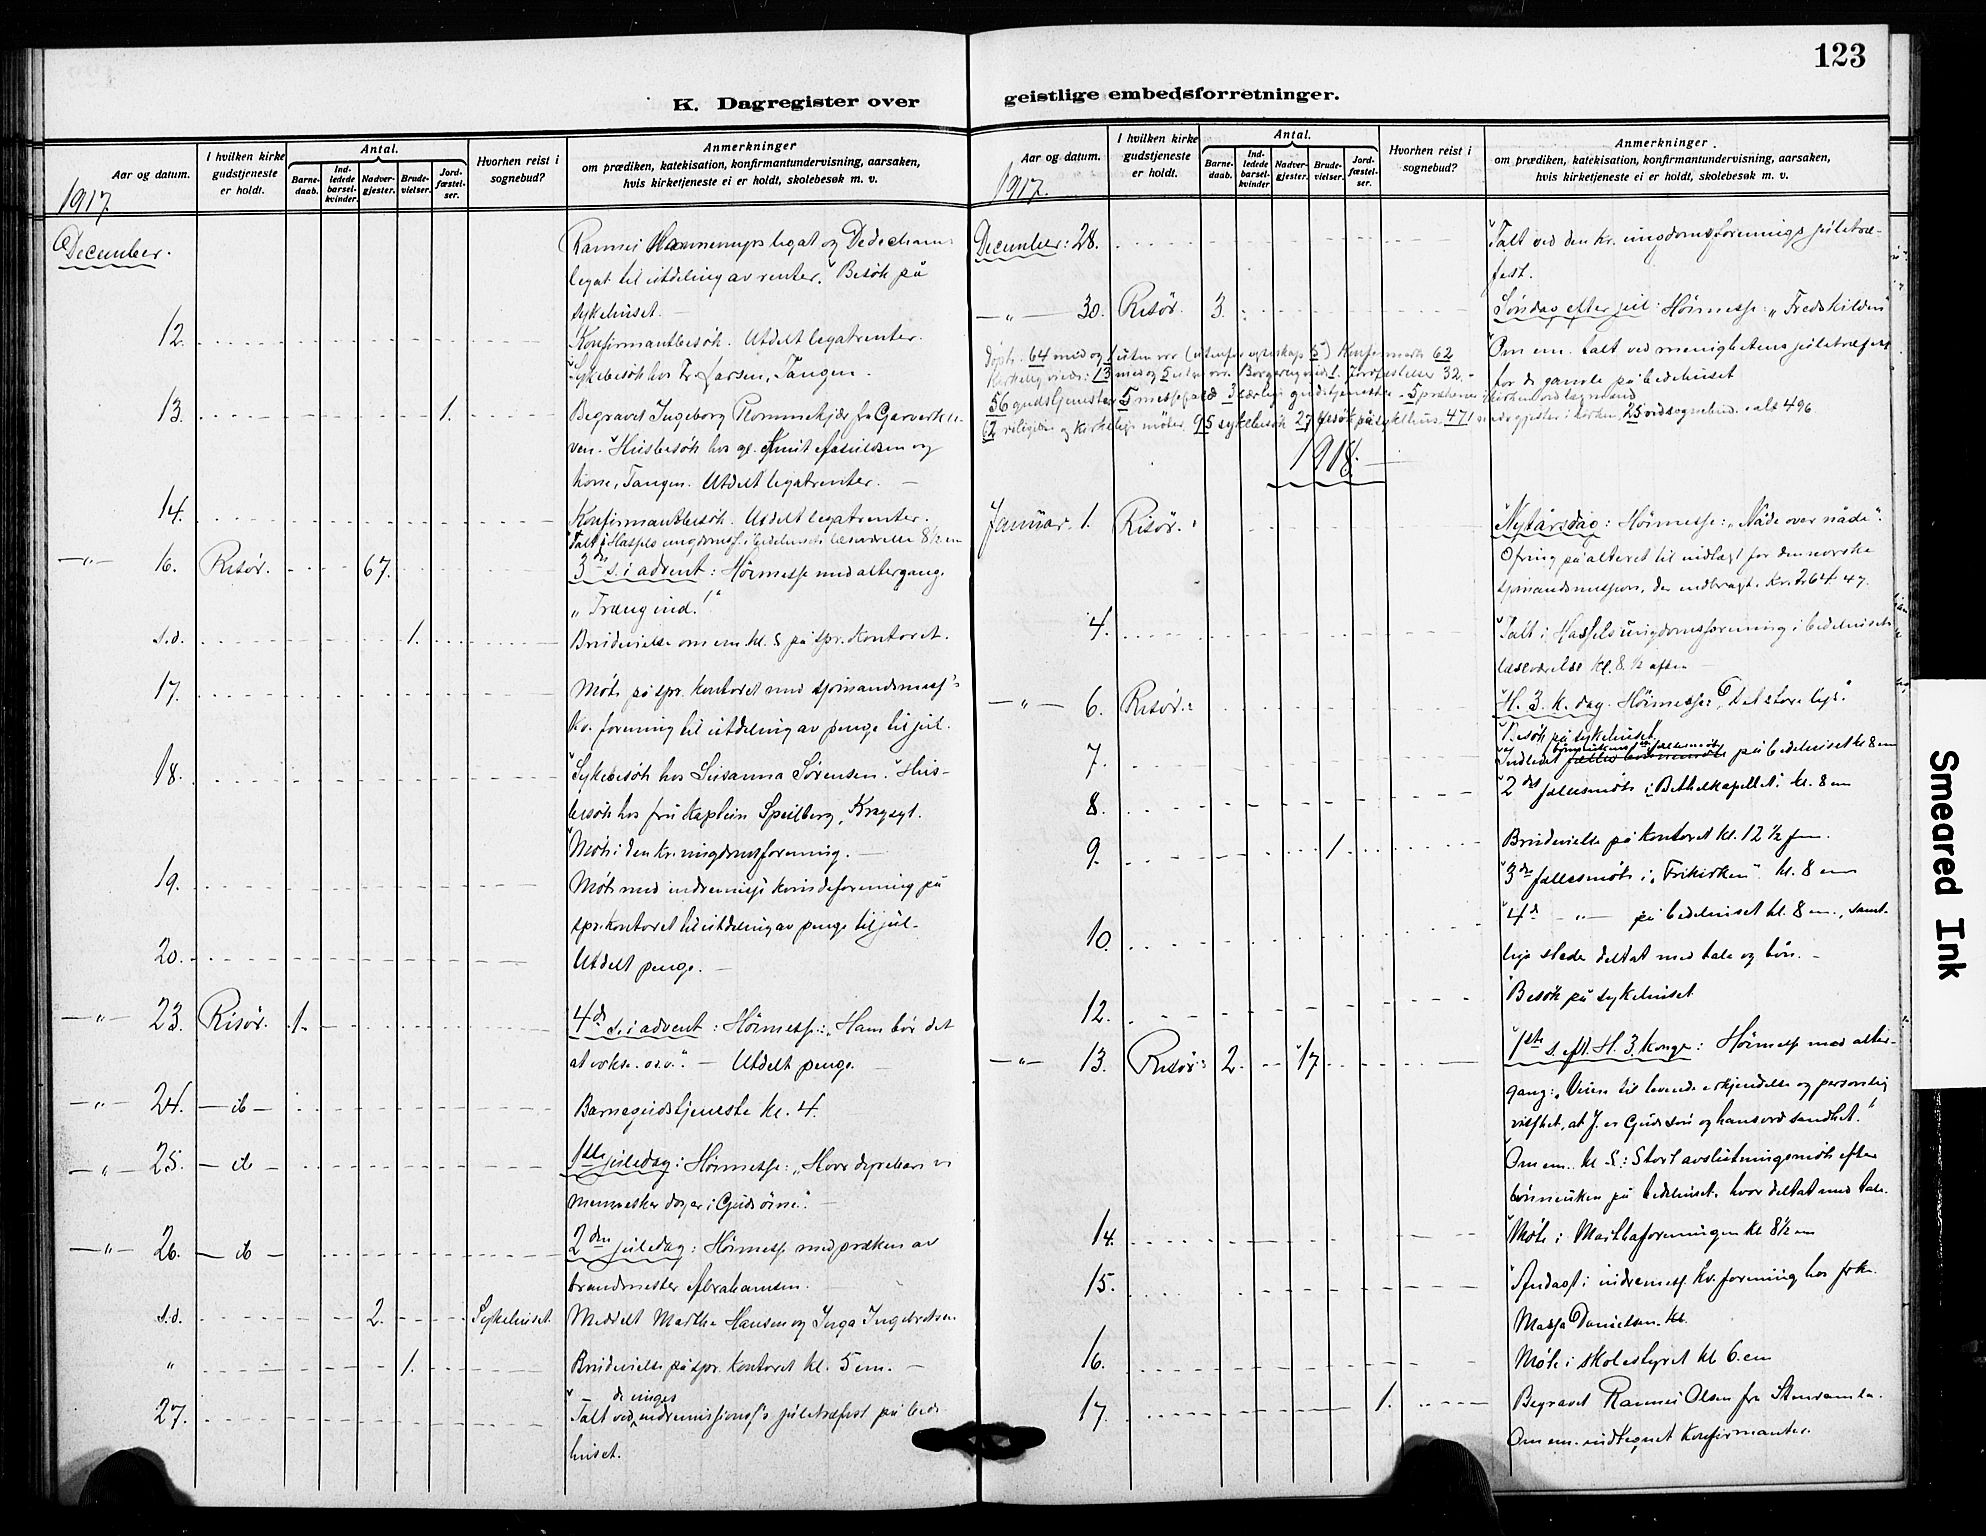 123
K. Dagregister over
geistlige embedsforretninger.
Aar og datum.
I hvilken kirke gudstjeneste er holdt.
Antal.
Barne-daab.
Ind-ledede barsel-kvinder.
Nadver-gjester.
Brude-vielser.
Jord-fæstel-ser.
Hvorhen reist i sognebud?
Anmerkninger
om prædiken, katekisation, konfirmantundervisning, aarsaken,
hvis kirketjeneste ei er holdt, skolebesøk m. v.
1917
December.
legat til utdeling av renter. Besök på
sykehuset. —
12. Konfirmantbesök. Utdelt legatrenter.
Sykebesök hos Fr. Larsen, Tangen.
13. 1. Begravet Ingeborg
ven. Husbesök hos
kone, Tangen. Utdelt legatrenter. —
14. Konfirmantbesök. Utdelt legatrenter.
Talt i Hassels ungdomsf. i bedehusets læseværelse 8½ em
— " — 16. Risör. 67. 3de s. i advent: Höimesse med altergang.
„Træng ind!"
s.d. 1. Brudevielse om em. kl. 5 på spr. kontoret.
17. Möte på spr. kontoret med sjömandsmisj's
kv. forening til utdeling av penge til jul.
18. Sykebesök hos Susanna Sörensen. Hus-
besök hos fru kaptein Speilberg, Kragsgt.
Möte i den kr. ungdomsforening. —
19. Möte med indremisj's kvindeforening på
spr. kontoret til utdeling av penge til jul.
20. Utdelt penge. —
— " — 23. Risör. 1. 4de s. i advent: Höimesse: „Ham bör det
at vokse o.s.v." — Utdelt penge. —
— " — 24. — ib — Barnegudstjeneste kl. 4.
— " — 25. — ib — 1ste juledag: Höimesse: „Hvor dyrebare vi
mennesker dog er i Guds öine." —
— " — 26. — ib — 2den juledag: Höimesse med præken av
brandmester Abrahamsen. —
s.d. 2. Sykehuset. Meddelt Marthe Hansen og Inga Ingebretsen
" 1. Brudevielse på spr. kontoret kl. 5 em. —
27. Talt ved de unges indremissjonsf's juletræfest på bede-
huset.
Aar og datum.
I hvilken kirke gudstjeneste er holdt.
Antal.
Barne-daab.
Ind-ledede barsel-kvinder
Nadver-gjester.
Brude-vielser.
Jord-fæstel-ser.
Hvorhen reist i sognebud?
Anmerkninger.
om prædiken, katekisation, konfirmantundervisning, aarsaken,
hvis kirketjeneste ei er holdt, skolebesøk m. v.
1917.
December: 28. Talt ved den kr. ungdomsforenings juletræ-
fest.
— " — 30. Risör. 3. Söndag efter jul: Höimesse: „Fredskilden"
Om em. talt ved menighetens juletræfest
for de gamle på bedehuset
Döpte 64 med og 1 uten (utenfor egteskap 5) Konfirmerte 62
Kirkelig viede: 13 med og 5 uten Borgerlig viede 1. Jordfæstelser 32.
56 gudstjenester 5 3 gudstjenester
62 religiöse og kirkelige möter. 95 sykebesök 27 besök på sykehus. 471 i kirken. 25 ved sognebud. ialt 496
1918. —
Januar. 1. Risör. Nytårsdag: Höimesse: „Nåde over nåde".
Ofring på alteret til indtægt for den norske
sjömandsmission, der indbragte kr. 264.47.
4. Talt i Hassels ungdomsforening i bedehusets
læseværelse kl. 8½ aften —
— " — 6. Risör. H. 3. k. dag. Höimesse: „Det store lys."
Besök på sykehuset.
7. Indledet fællesmöte på bedehuset kl 8 em
8. 2det fællesmöte i „Bethelkapellet". kl. 8 em
9. 1. Brudevielse på kontoret kl. 12½ fm.
3die fællesmöte i „Frikirken" kl. 8 em
10. 4de — " — på bedehuset kl. 8 em., samt-
lige steder deltat med tale og bön. —
12. Besök på sykehuset
— " — 13. Risör: 2. 17 1ste s. eft. H. 3. konge: Höimesse med alter-
gang: „Veien til levende erkjendelse og personlig
visshet, at J. er Guds sön og hans ord sandhet."
Om em. kl 5: Stort avslutningsmöte efter
bönneuken på bedehuset, hvor deltat med tale.
14. Möte i Marthaforeningen kl 8½ em
15. Andagt i indremisj. kv. forening hos frk.
Danielsen. kl.
16. Möte i skolestyret kl 6. em
17. 1. Begravet Olsen fra
Om em. indtegnet konfirmanter.
Smeared Ink